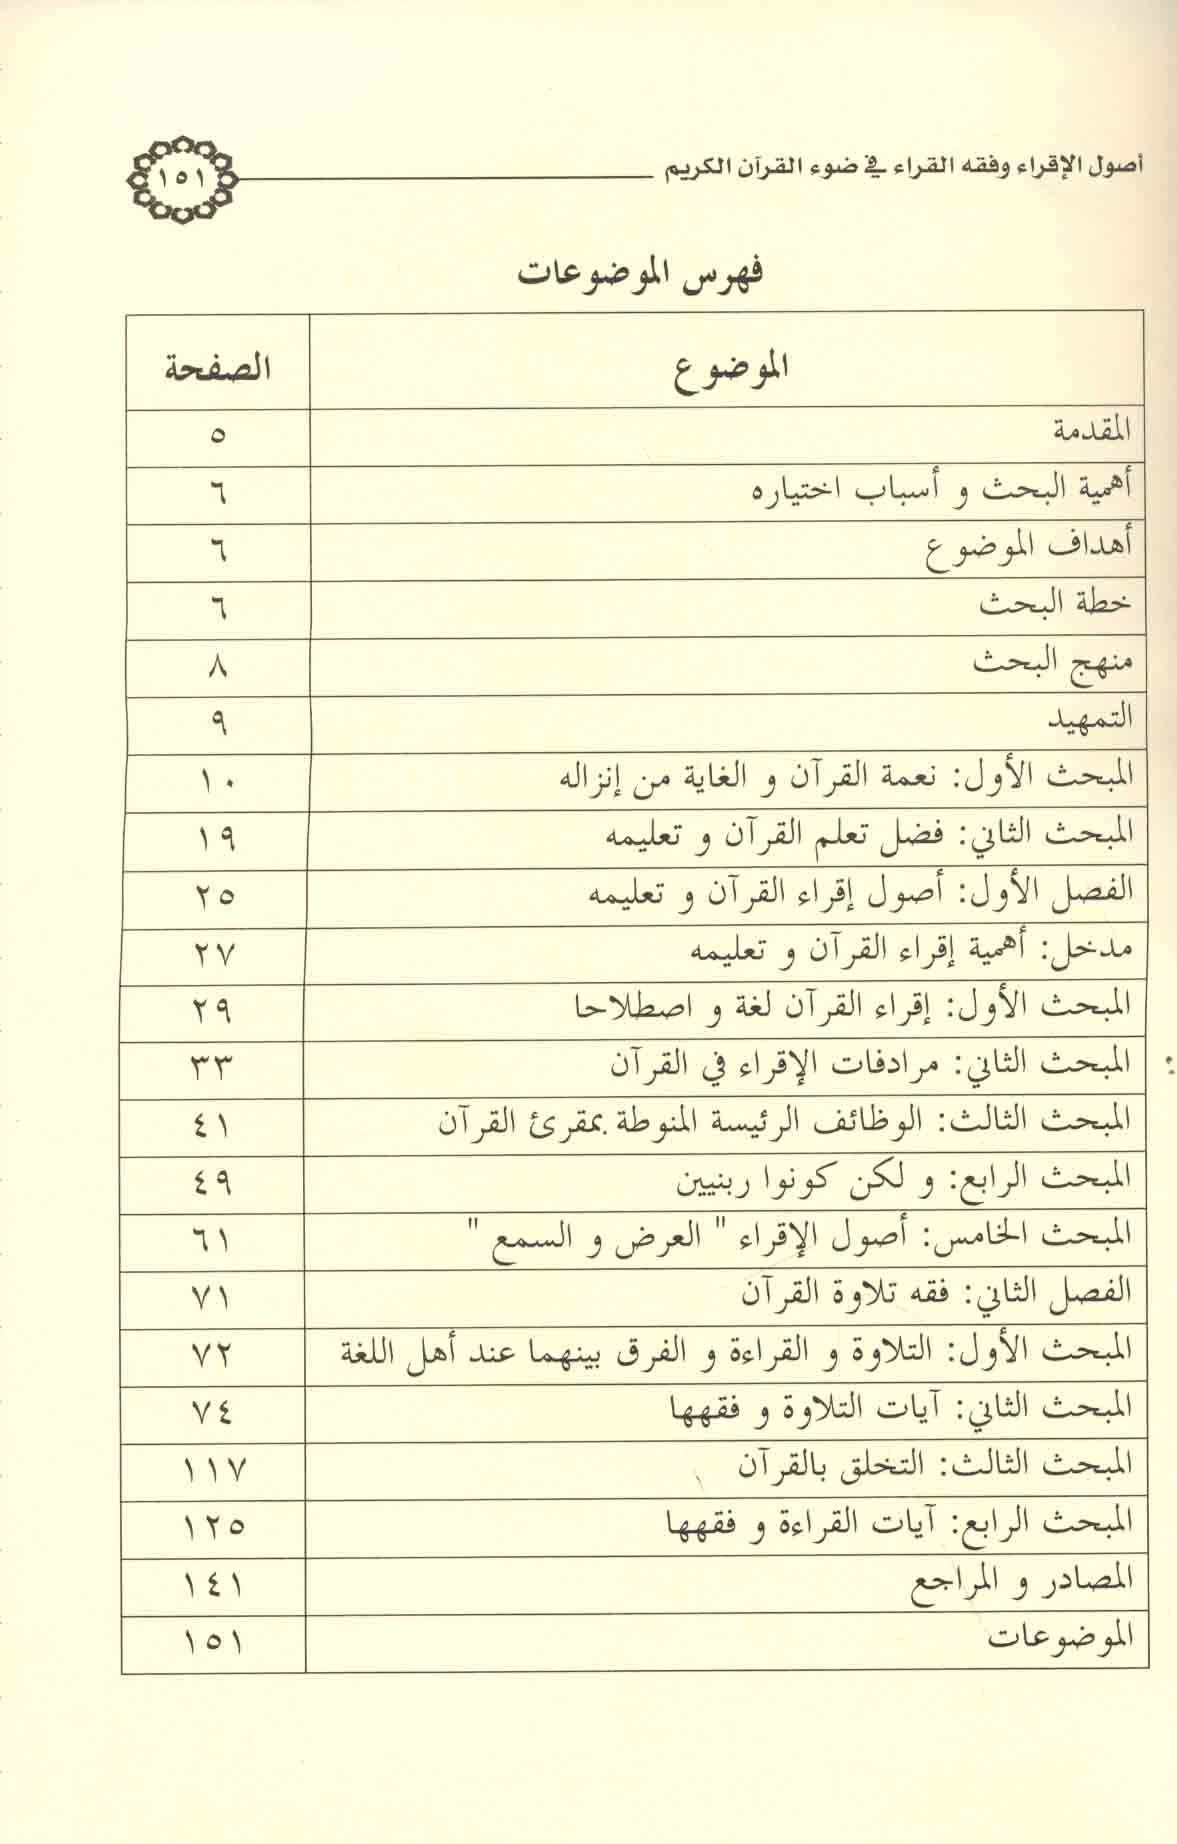 أصول الإقراء وفقه القراء في ضوء القرآن الكريم ١٥١
فهرس الموضوعات
الموضوع الصفحة
المقدمة ٥
أهمية البحث و أسباب اختياره ٦
أهداف الموضوع ٦
خطة البحث ٦
منهج البحث ٨
التمهيد ٩
المبحث الأول: نعمة القرآن و الغاية من إنزاله ١٠
المبحث الثاني: فضل تعلم القرآن و تعليمه ١٩
الفصل الأول: أصول إقراء القرآن و تعليمه ٢٥
مدخل: أهمية إقراء القرآن و تعليمه ٢٧
المبحث الأول: إقراء القرآن لغة و اصطلاحا ٢٩
المبحث الثاني: مرادفات الإقراء في القرآن ٣٣
المبحث الثالث: الوظائف الرئيسة المنوطة بمقرئ القرآن ٤١
المبحث الرابع: و لكن كونوا ربنيين ٤٩
المبحث الخامس: أصول الإقراء " العرض و السمع " ٦١
الفصل الثاني: فقه تلاوة القرآن ٧١
المبحث الأول: التلاوة و القراءة و الفرق بينهما عند أهل اللغة ٧٢
المبحث الثاني: آيات التلاوة و فقهها ٧٤
المبحث الثالث: التخلق بالقرآن ١١٧
المبحث الرابع: آيات القراءة و فقهها ١٢٥
المصادر و المراجع ١٤١
الموضوعات ١٥١